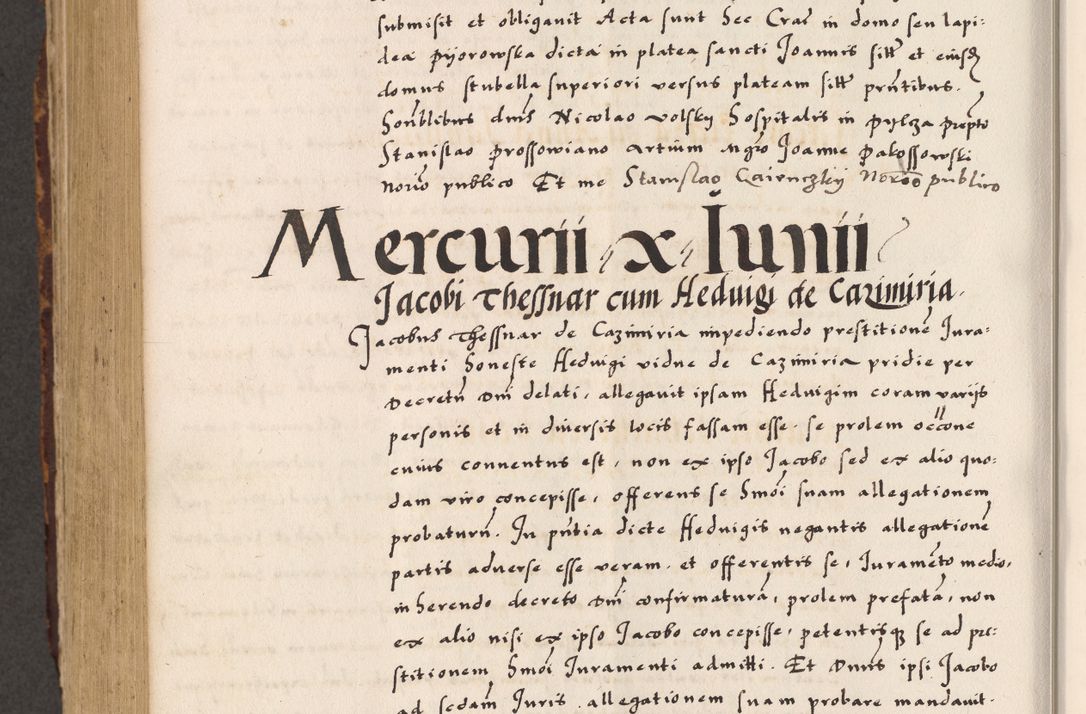 submisit et obligavit Acta sunt hec Crac in domo seu lapi:
dea Pijorowska dicta in platea sancti Joannis sitt et eiusd
domus stubella superiori versus plateam sitt prntibus.
honblibus dnis Nicolao volsky hospitalis in pylcza prepto
Stanislao Prossowiano artium mgro Joanne Pakossowski
norio publico Et me Stanislao Norioo publico
Mercurii x Iunii
Jacobi Thessnar cum Heduigi de Cazimiria.
Jacobus Thessnar de Cazimiria impediendo prestitione Jura:
menti honeste Heduigi vidue de Cazimiria pridie per
Decretu Dni delati, allegauit ipsam Heduigim coram varijs
personis et in diuersis locis fassam esse. se prolem occone
cuius conuentus est, non ex ipso Jacobo sed ex alio quo:
dam viro concepisse, offerens se hmoi suam allegationem
probaturu. In pntia dicte Heduigis negantis allegatione
partis aduerse esse veram. et offerentis se, Iuramento medio,
inherendo decreto Dni confirmatura, prolem prefata, non
ex alio nisi ex ipso Jacobo concepisse, petentisq se ad pre:
stitionem hmoi Iuramenti admitti. Et Dnus ipsi Jacobo
ad sedam Juris. allegationem suam probare mandauit.